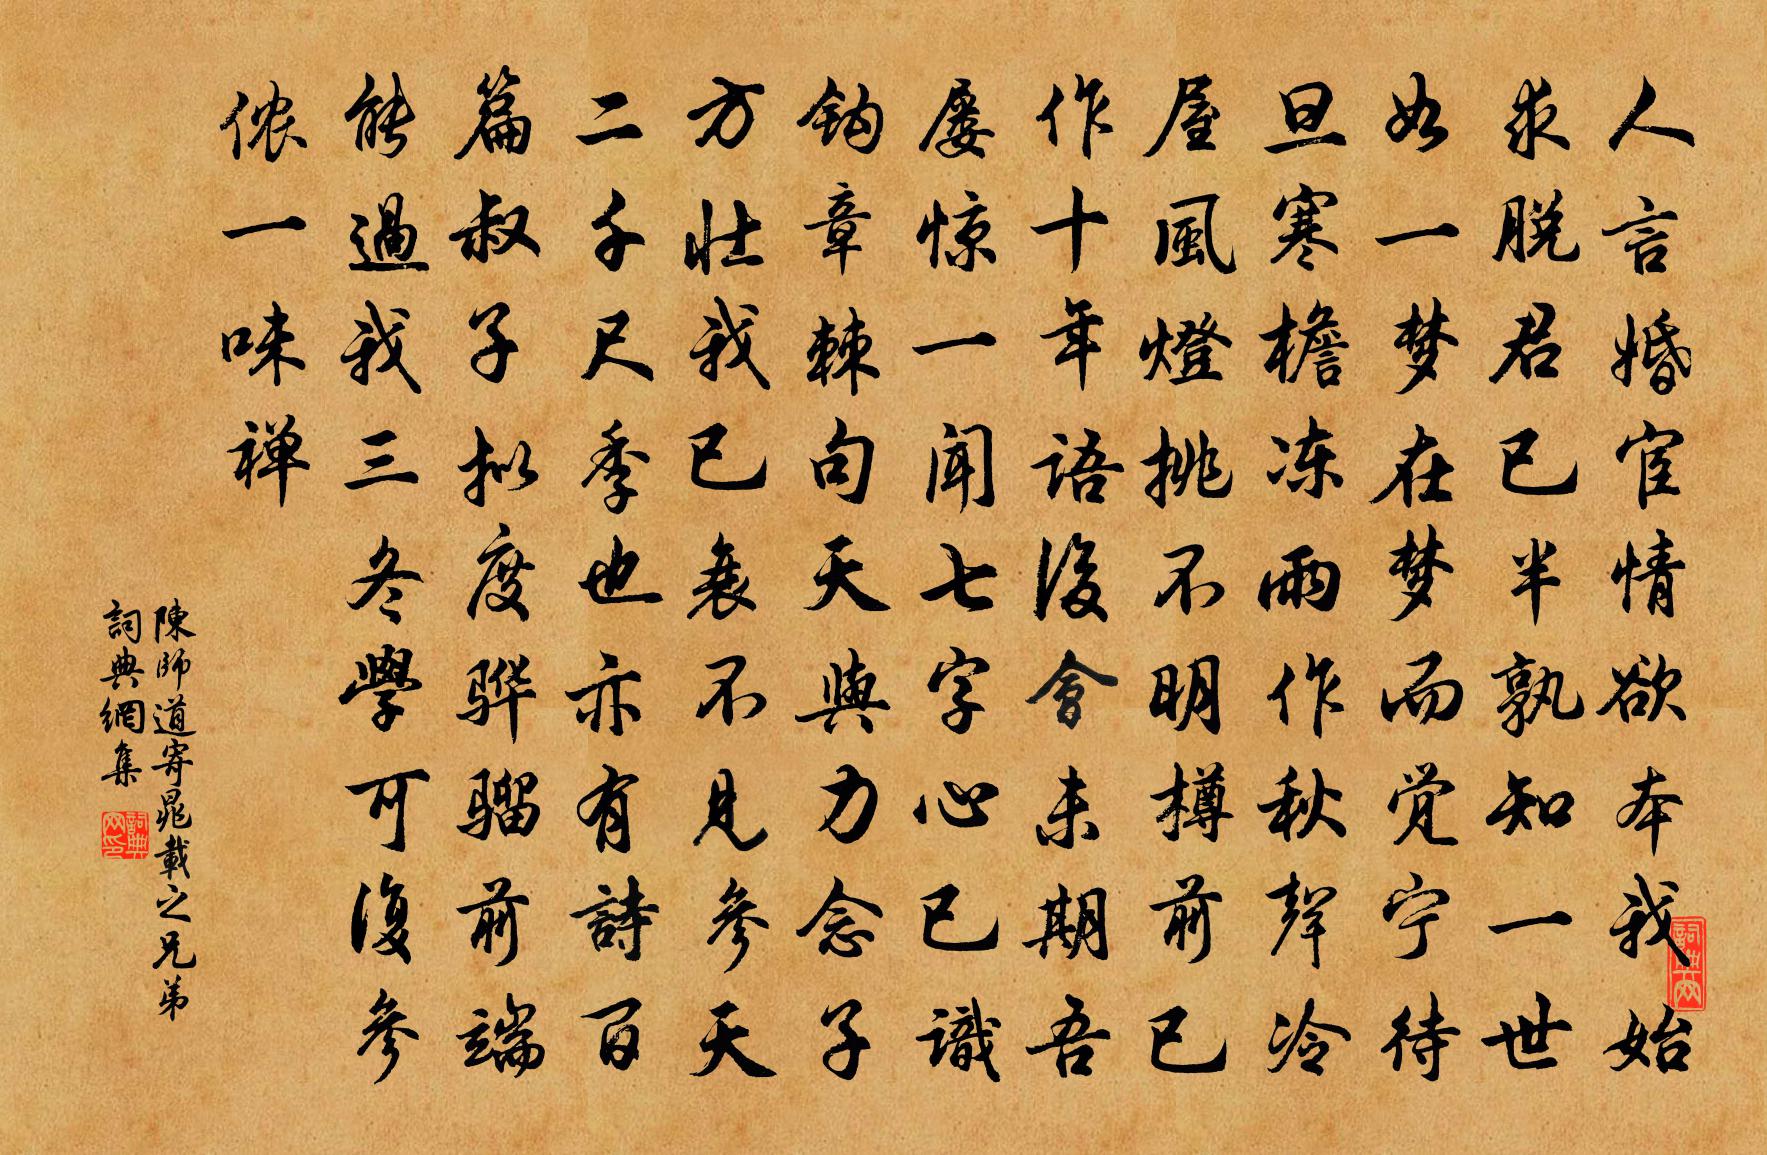 人言婚宦情欲本我始
求脱君已半孰知一世
如一梦在梦而觉宁待
旦寒檐冻雨作秋聲冷
屋風燈挑不明樽前已
作十年語後會未期吾
屡惊一聞七字心已識
鈎章棘句天與力念子
方壮我已衰不見參天
二千尺季也亦有詩百
篇叔子拟度骅骝前端
能過我三冬學可復參
侬一味禅
陳師道寄晁載之兄弟
詞典網集
詞典网
詞典网印